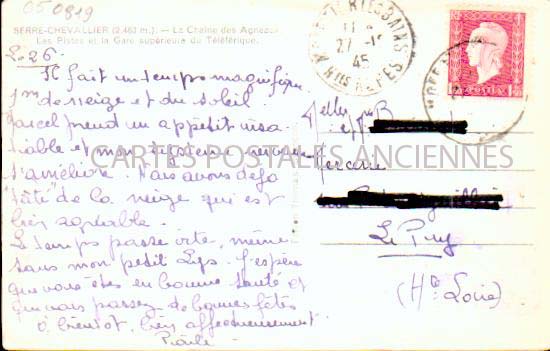 050819
SERRE-CHEVALLIER (2.483 m.) — La Chaîne des Agneaux
Les Pistes et la Gare supérieure du Téléférique.
L. 26.
Il fait un temps magnifique
1m de neige et du soleil.
Marcel prend un appétit insa-
tiable et mon système nerveux
s'améliore. Nous avons déjà
"tâté" de la neige qui est
très agréable.
Le temps passe vite, même
sans mon petit J'espère
que vous êtes en bonne santé et
que vous passez de bonnes fêtes
à bientôt, bien affectueusement
27
45
HTES ALPES
CARTES POSTALES ANCIENNES
Mercerie
Le Puy
(Hte Loire)